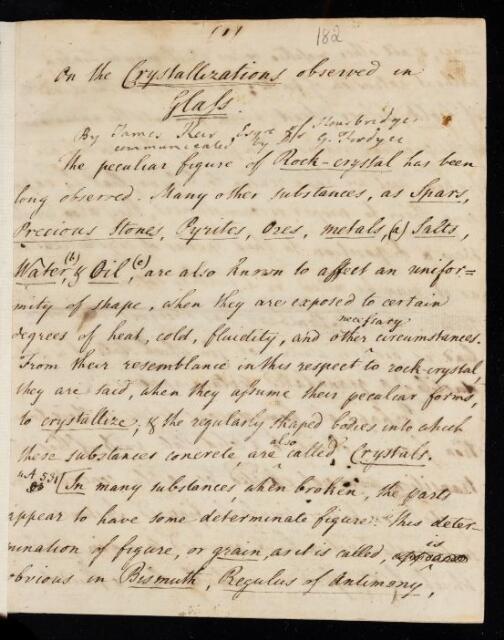 (1)
182
On the Crystallizations observed in
Glass.
By James Keir Esqre of Stourbridge;
communicated by Dr G. Fordyce
The peculiar figure of Rock-crystal has been
long observed. Many other substances, as Spars,
Precious Stones, Pyrites, Ores, metals, (a) Salts,
Water, (b) & Oil, (c) are also known to affect an unifor=
mity of shape, when they are exposed to certain
necessary
degrees of heat, cold, fluidity, and other circumstances.
From their resemblance in this respect to rock-crystal,
they are said, when they assume their peculiar forms,
to crystallize; & the regularly shaped bodies into which
these substances concrete, are also called Crystals.
[In many substances, when broken, the parts
appear to have some determinate figure. This deter-
mination of figure, or grain, as it is called, is
obvious in Bismuth, Regulus of Antimony,